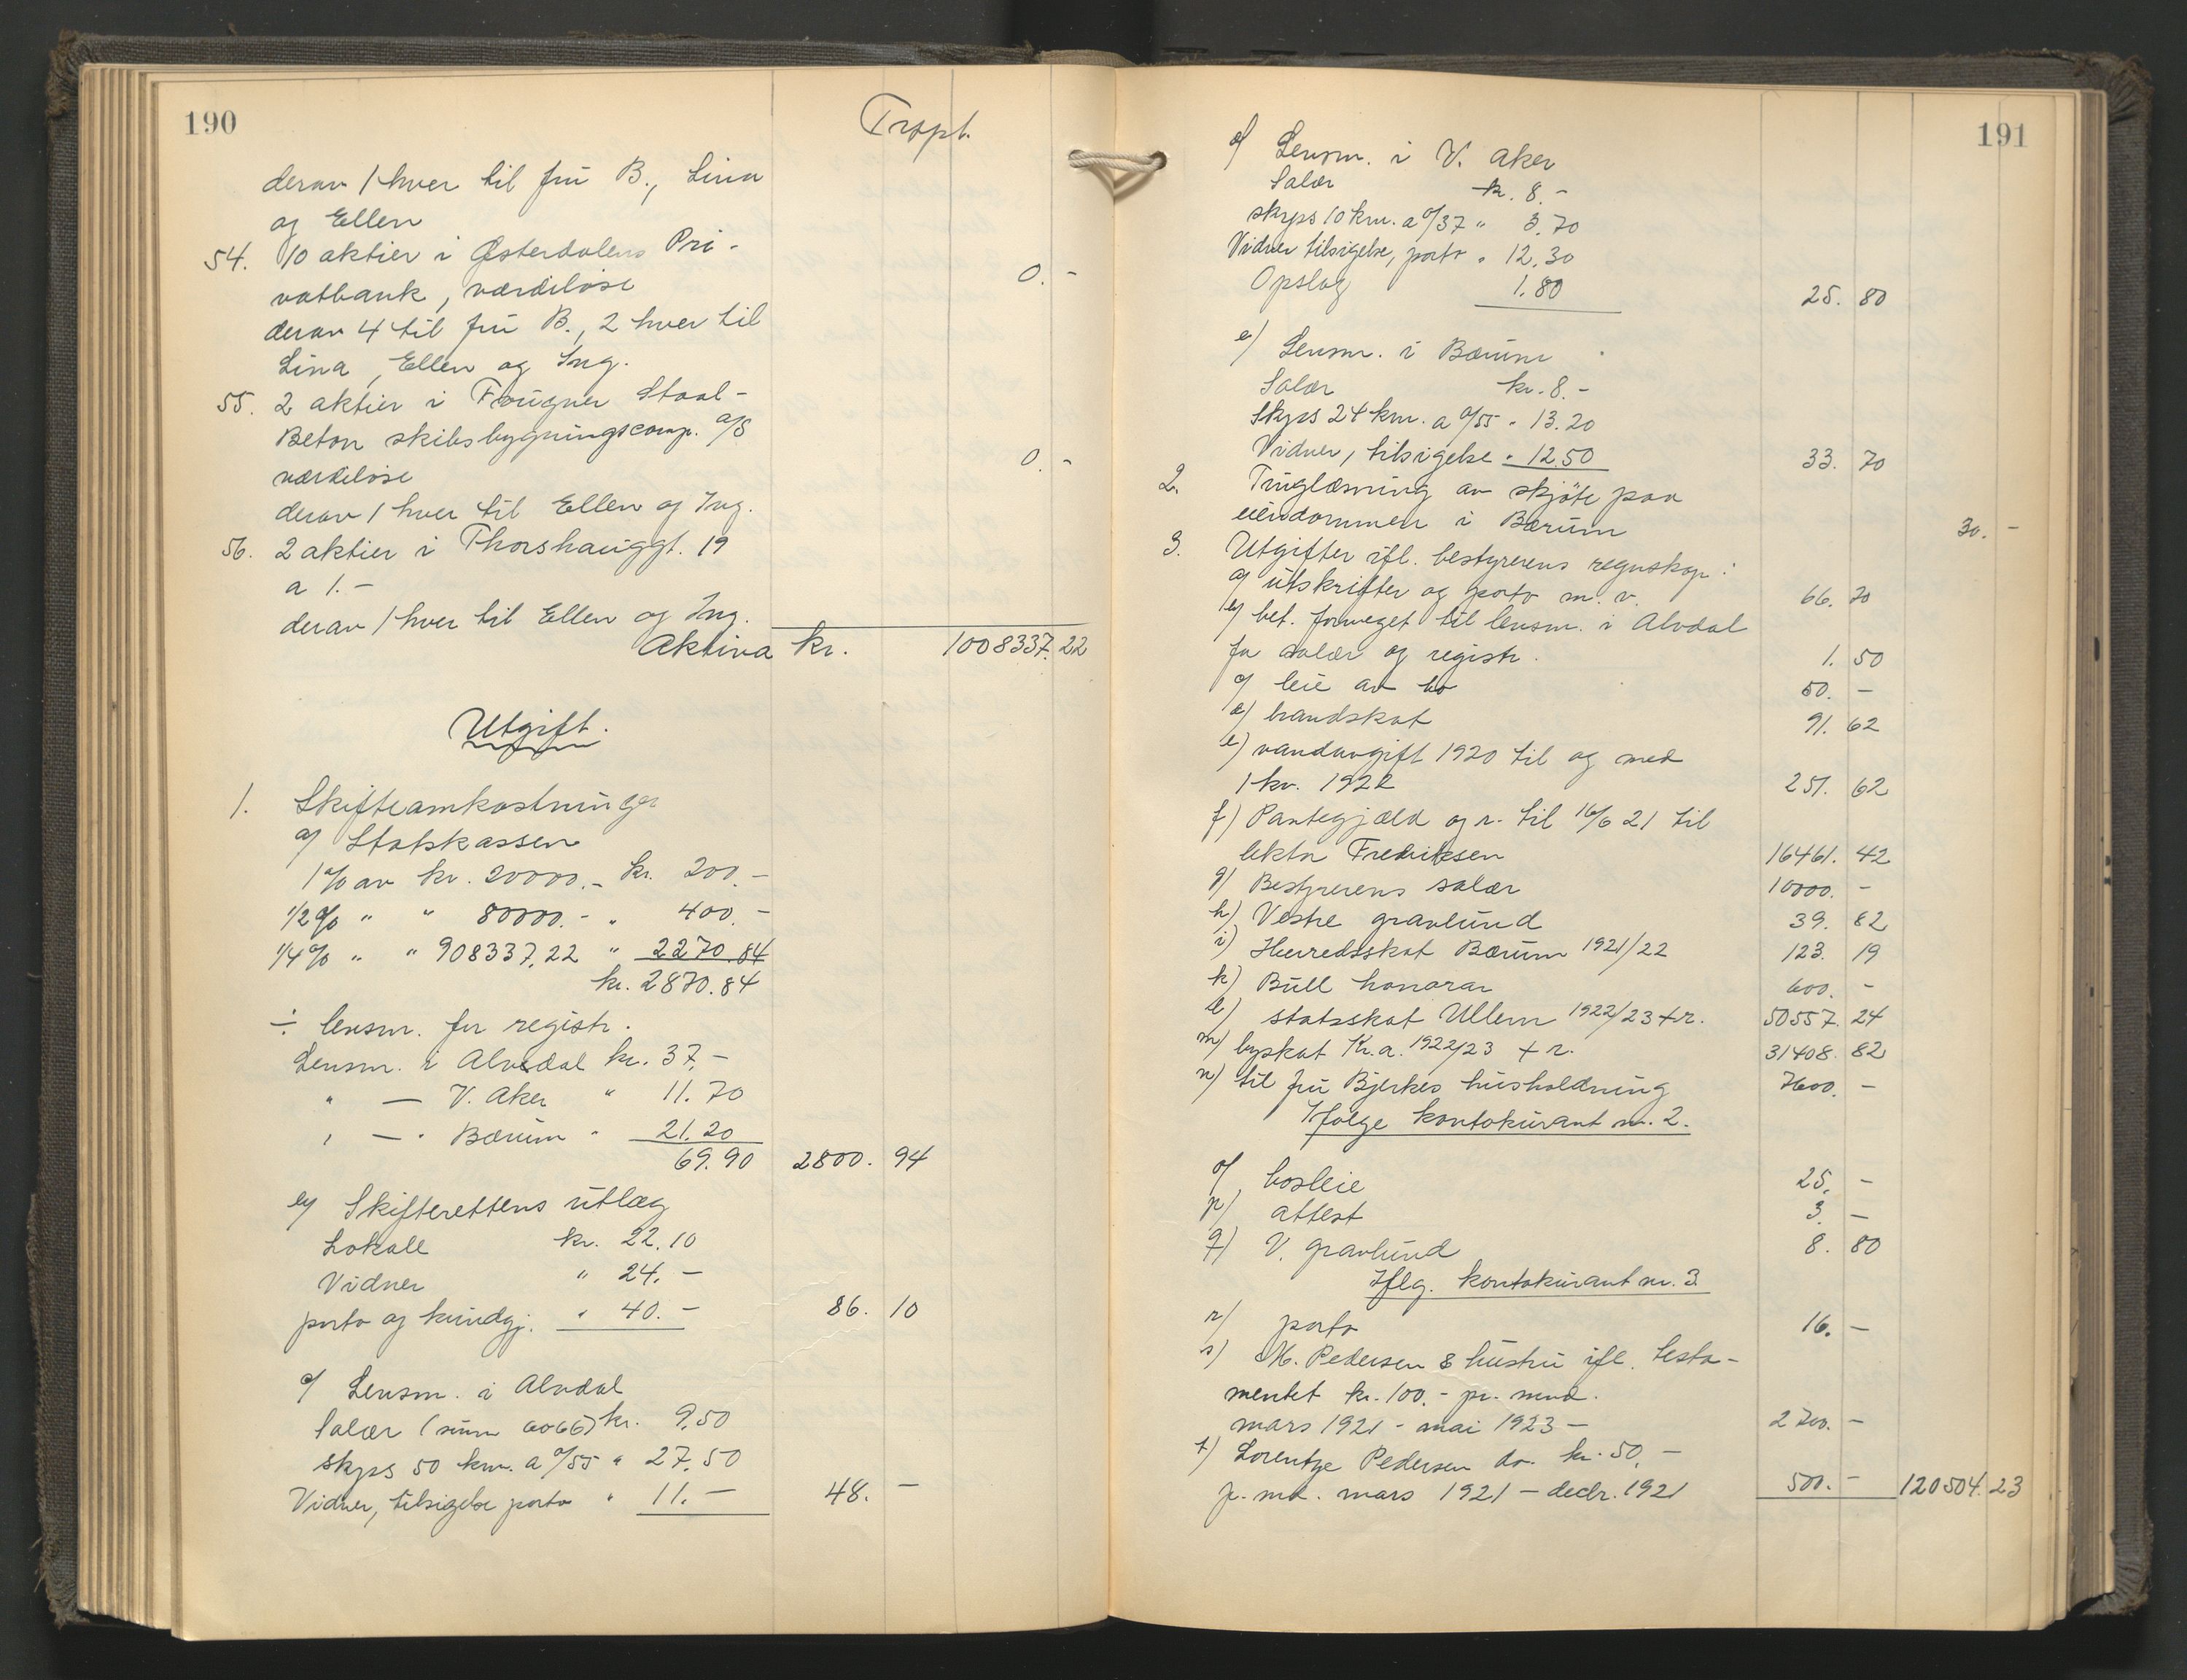 190
Trspt.
derav 1 hver til fru B., Lina
og Ellen
54. 10 aktier i Østerdalens Pri-
vatbank, værdiløse 0.-
derav 4 til fru B., 2 hver til
Lina, Ellen og Ing.
55. 2 aktier i Fougner Staal-
Beton skibsbygningscomp. A/S
værdiløse 0.-
derav 1 hver til Ellen og Ing.
56. 2 aktier i Thorshauggt. 19
a 1.-
derav 1 hver til Ellen og Ing.
Aktiva kr. 1008337.22
Utgift.
1. Skifteomkostninger
a/ Statskassen
1% av kr. 20000.- kr. 200.-
1/2% " " 80000.- " 400.-
1/4% " " 908337.22 " 2270.84
kr. 2870.84
÷ lensm. for registr.
Lensm. i Alvdal kr. 37.-
" — V. Aker " 11.70
" — " Bærum " 21.20
69.90 2800.94
b/ Skifterettens utlæg
Lokale kr. 22.10
Vidner " 24.-
porto og kundgj. " 40.- 86.10
c/ Lensm. i Alvdal
Salær (sum 6066) kr. 9.50
skyss 50 km. a 0/55 " 27.50
Vidner, tilsigelse porto " 11.- 48.-
191
d/ Lensm. i V. Aker
Salær kr. 8.-
skyss 10 km. a 0/37 " 3.70
Vidner tilsigelse, porto " 12.30
Opslag 1.80 25.80
e/ Lensm. i Bærum
Salær kr. 8.-
Skyss 24 km. a 0/55 " 13.20
Vidner, tilsigelse " 12.50 33.70
2. Tinglæsning av skjøte paa
eiendommen i Bærum 30.-
3. Utgifter ifl. bestyrerens regnskap:
a/ utskrifter og porto m. v. 66.70
b/ bet. forveget til lensm. i Alvdal
for salær og registr. 1.50
c/ leie av bo 50.-
d/ brandskat 91.62
e/ vandavgift 1920 til og med
1 kv. 1922 251.62
f) Pantegjæld og r. til 16/6 21 til
lektor Fredriksen 16461.42
g) Bestyrerens salær 10000.-
h) Vestre gravlund 39.82
i) Herredsskat Bærum 1921/22 123.19
k) Bull honorar 600.-
l) statsskat Ullern 1922/23 + r. 50557.24
m) byskat Kr.a. 1922/23 + r. 31408.82
n) til fru Bjerkes husholdning 7600.-
Ifølge kontokurant nr. 2.
o/ bosleie 25.-
p/ attest 3.-
q/ V. gravlund 8.80
Iflg. kontokurant nr. 3
r/ porto 16.-
s) M. Pedersen & hustru ifl. testa-
mentet kr. 100.- pr. mnd.
mars 1921 - mai 1923 - 2700.-
t) Lorentze Pedersen do. kr. 50.-
p. md. mars 1921 - decbr. 1921 500.- 120504.23